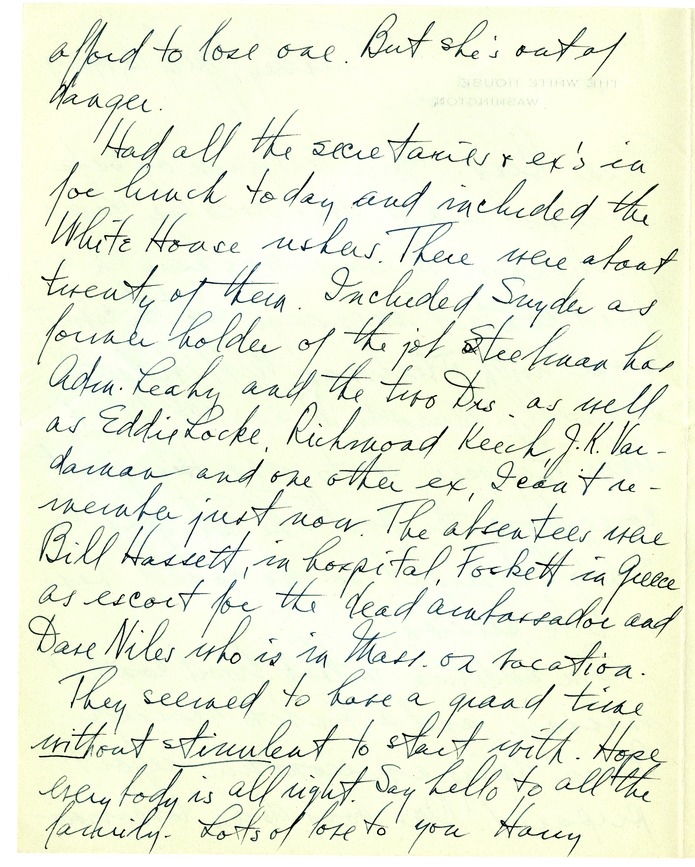 afford to lose one. But she's out of
THE WHITE HOUSE
WASHINGTON
danger.
Had all the secretaries & ex's in
for lunch today and included the
White House ushers. There were about
twenty of them. Included Snyder as
former holder of the job Steelman has
Adm. Leahy and the two Drs. as well
as Eddie Locke, Richmond Keech, J.K. Var-
daman and one other ex, I can't re-
member just now. The absentees were
Bill Hassett, in hospital, Foskett in Greece
as escort for the dead ambassador and
Dave Niles who is in Mass. on vacation.
They seemed to have a grand time
without stimulent to start with. Hope
everybody is all right. Say hello to all the
family. Lots of love to you Harry